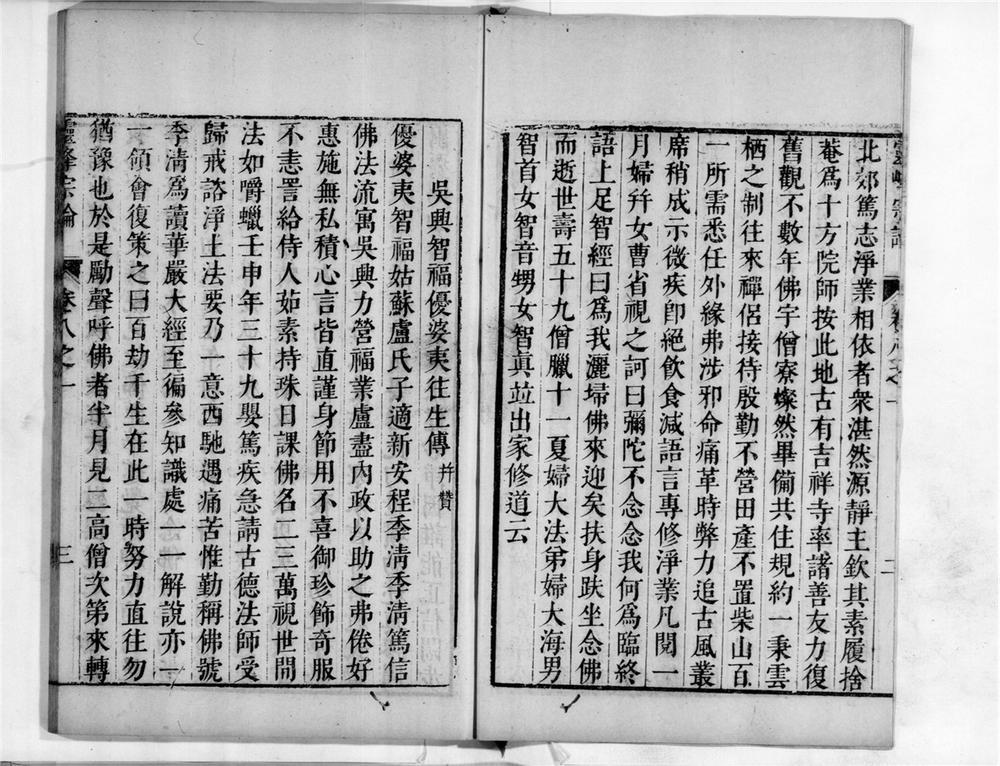 北郊篤志淨業相依者衆湛然源靜主欽其素履捨
菴爲十方院師按此地古有吉祥寺率諸善友力復
舊觀不數年佛宇僧寮燦然畢備共住規約一秉雲
栖之制往來禪侶接待殷勤不營田產不置柴山百
一所需悉任外緣弗涉邪命痛革時弊力追古風叢
席稍成示微疾卽絕飲食減語言專修淨業凡閱一
月婦幷女曹省視之訶曰彌陀不念念我何爲臨終
語上足智經曰爲我灑埽佛來迎矣扶身趺坐念佛
而逝世壽五十九僧臘十一夏婦大法弟婦大海男
智首女智音甥女智眞竝出家修道云
卷八之一
二
吳興智福優婆夷往生傳并贊
優婆夷智福姑蘇盧氏子適新安程季淸季淸篤信
佛法流寓吳興力營福業盧盡內政以助之弗倦好
惠施無私積心言皆直謹身節用不喜御珍飾奇服
不恚詈給侍人茹素持珠日課佛名二三萬視世間
法如嚼蠟壬申年三十九嬰篤疾急請古德法師受
歸戒諮淨土法要乃一意西馳遇痛苦惟勤稱佛號
季淸爲讀華嚴大經至徧參知識處一一解說亦一
一領會復策之曰百劫千生在此一時努力直往勿
猶豫也於是勵聲呼佛者半月見二高僧次第來轉
靈峰宗論
卷八之一
三